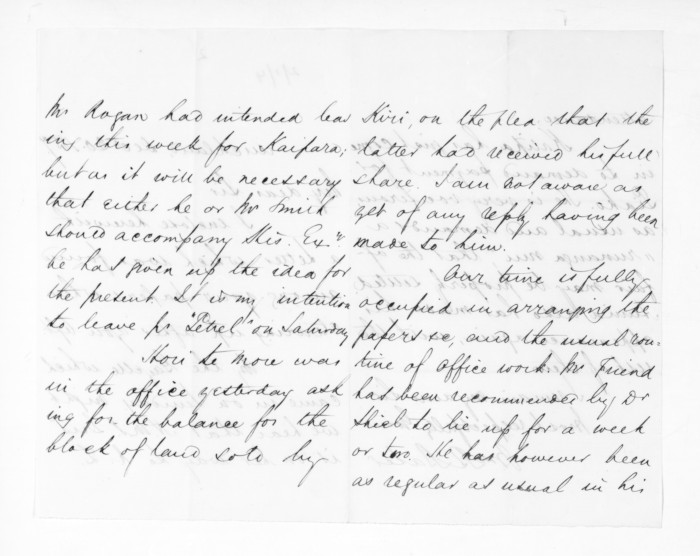 Mr Rogan had intended leav
ing this week for Kaipara;
but as it will be necessary
that either he or Mr Smith
should accompany His Exy.
he has given up the idea for
the present. It is my intention
to leave pr "Petrel" on Saturday
Hori te More was
in the office yesterday ask
ing for the balance for the
block of land sold by
Kiri, on the plea that the
latter had received his full
share. I am not aware as
yet of any reply having been
made to him.
Our time is fully
occupied in arranging the
papers &c, and the usual rou-
tine of office work. Mr Friend
has been recommended by Dr
to lie up for a week
or two. He has however been
as regular as usual in his